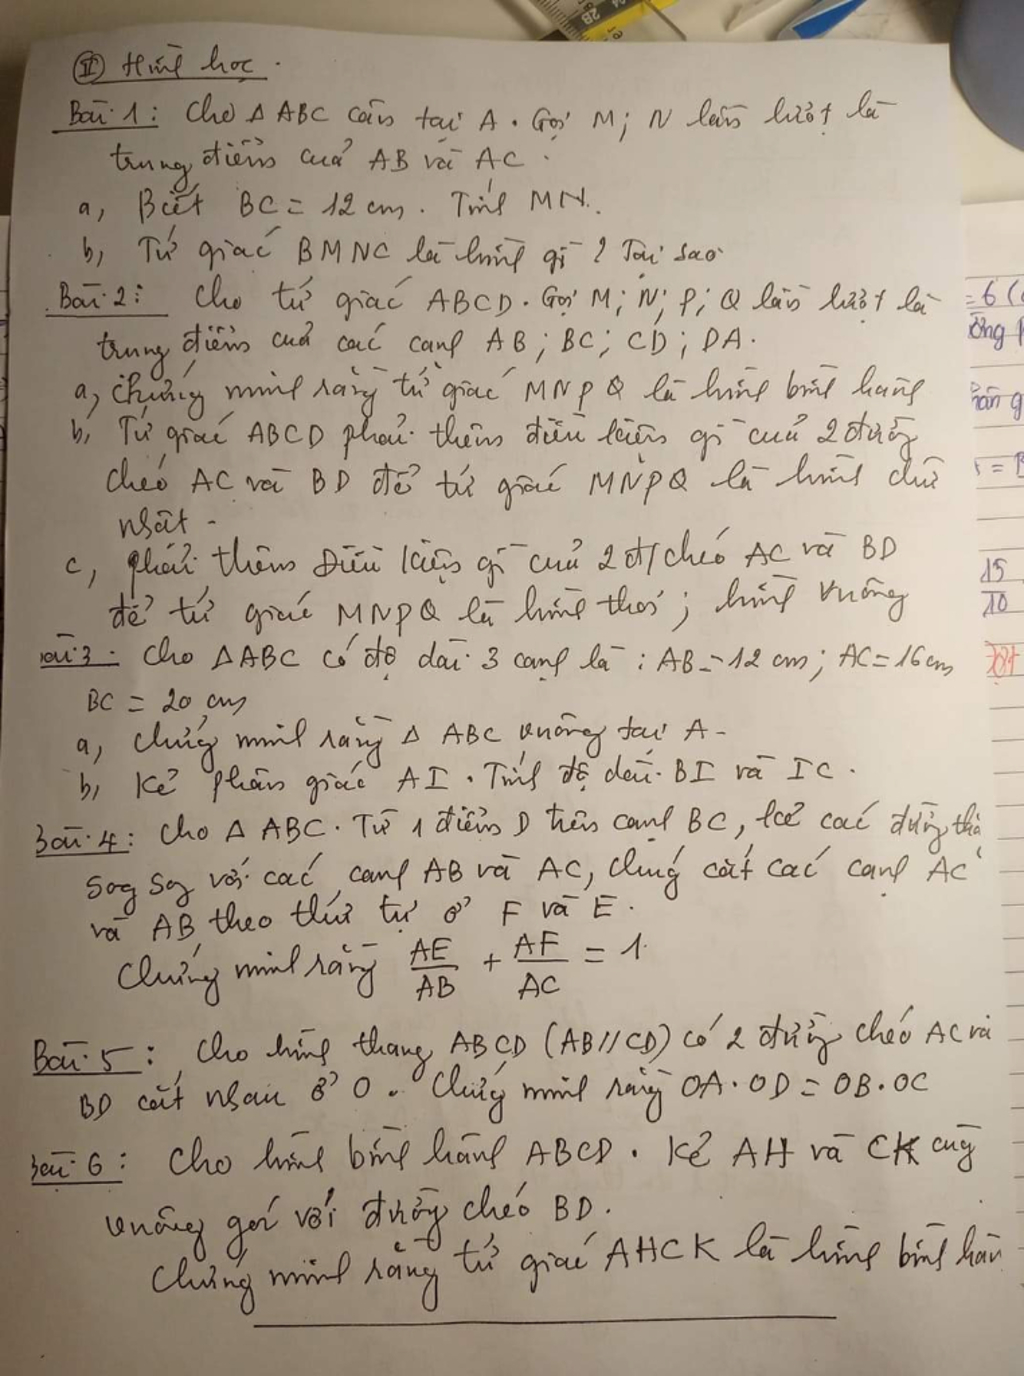 II Hình học.
Bài 1: Cho Δ ABC cân tại A. Gọi M; N lần lượt là
trung điểm của AB và AC.
a, Biết BC = 12 cm. Tính MN.
b, Tứ giác BMNC là hình gì? Tại sao
Bài 2: Cho tứ giác ABCD. Gọi M; N; P; Q lần lượt là
trung điểm của các cạnh AB; BC; CD; DA.
a, Chứng minh rằng tứ giác MNPQ là hình bình hành
b, Tứ giác ABCD phải thêm điều kiện gì của 2 đường
chéo AC và BD để tứ giác MNPQ là hình chữ
nhật.
c, phải thêm Điều kiện gì của 2 đ/chéo AC và BD
để tứ giác MNPQ là hình thoi; hình vuông
Bài 3: Cho ΔABC có độ dài 3 cạnh là: AB = 12 cm; AC = 16 cm
BC = 20 cm
a, Chứng minh rằng Δ ABC vuông tại A.
b, Kẻ phân giác AI. Tính độ dài BI và IC.
Bài 4: Cho Δ ABC. Từ 1 điểm D trên cạnh BC, kẻ các đường thẳ
song song với các cạnh AB và AC, chúng cắt các cạnh AC
và AB theo thứ tự ở F và E.
Chứng minh rằng AE/AB + AF/AC = 1
Bài 5: Cho hình thang ABCD (AB//CD) có 2 đường chéo AC và
BD cắt nhau ở O. Chứng minh rằng OA.OD = OB.OC
Bài 6: Cho hình bình hành ABCD. Kẻ AH và CK cùng
vuông góc với đường chéo BD.
Chứng minh rằng tứ giác AHCK là hình bình hàn
= 6
15
10